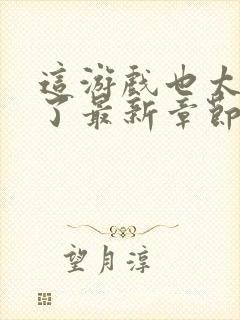 這游戲也太
了最新章節
望月淳